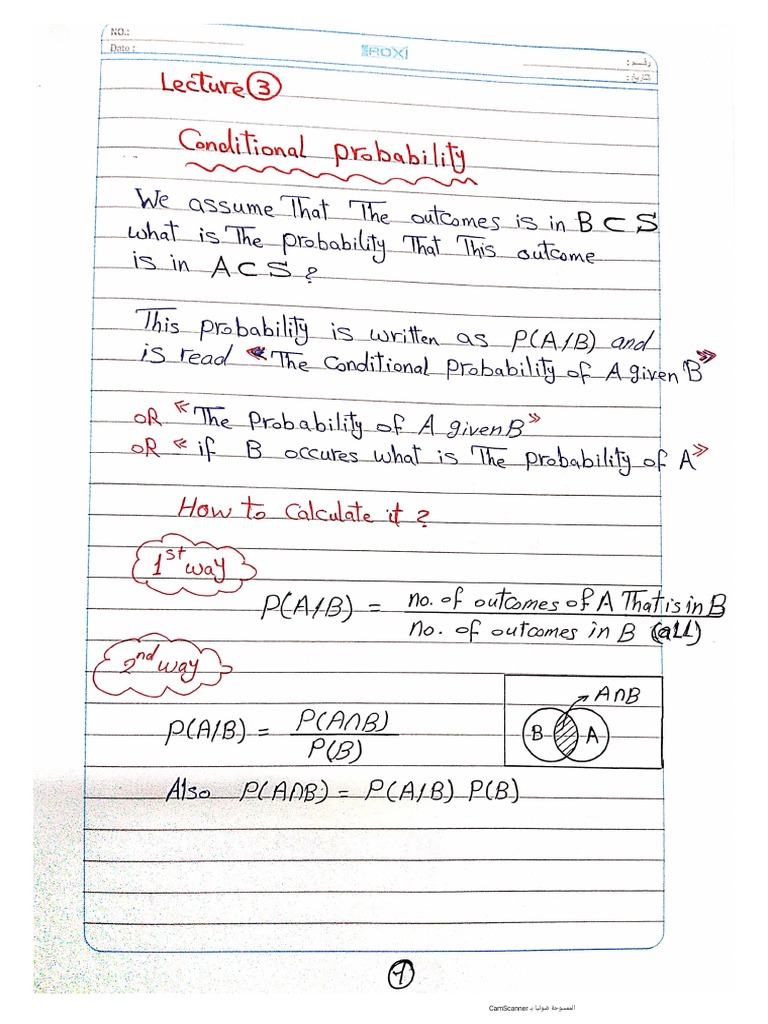 NO.:
Date :
ROXI
رقـــم :
التاريخ :
Lecture ③
Conditional probability
We assume That The outcomes is in B ⊂ S
what is The probability That This outcome
is in A ⊂ S ?
This probability is written as P(A/B) and
is read « The Conditional probability of A given B »
OR « The Probability of A given B »
OR « if B occures what is The probability of A »
How to Calculate it ?
1st way
P(A/B) = no. of outcomes of A That is in B / no. of outcomes in B (all)
2nd way
P(A/B) = P(A∩B) / P(B)
A∩B
B A
Also P(A∩B) = P(A/B) P(B)
1
الممسوحة ضوئيا بـ CamScanner